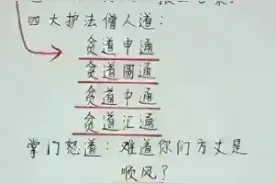 四大护法僧人道：
贫道申通
贫道圆通
贫道中通
贫道汇通
掌门怒道：难道你们方丈是
顺风？